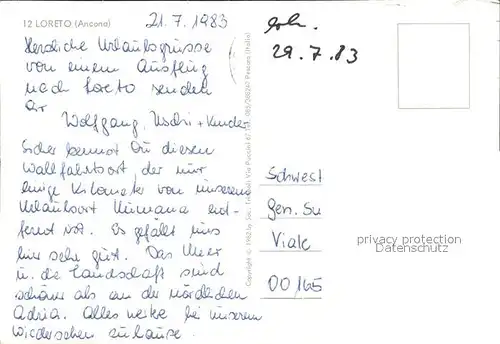 12 LORETO (Ancona)
21. 7. 1983
erh.
29. 7. 83
Herzliche Urlaubsgrüsse
von einem Ausflug
nach Loreto senden
Dir
Wolfgang, Uschi + Kinder
Sicher kennst Du diesen
Wallfahrtsort, der nur
einige Kilometer von unserem
Urlaubsort Numana ent-
fernt ist. Es gefällt uns
hier sehr gut. Das Meer
u. die Landschaft sind
schöner als an der nördlichen
Adria. Alles weitere bei unserem
Wiedersehen zuhause.
Copyright © 1982 by
Via Puccini 67 Tel. 085/28247 Pescara (Italia)
Schwest
Gen. Su
Viale
00165
privacy protection
Datenschutz